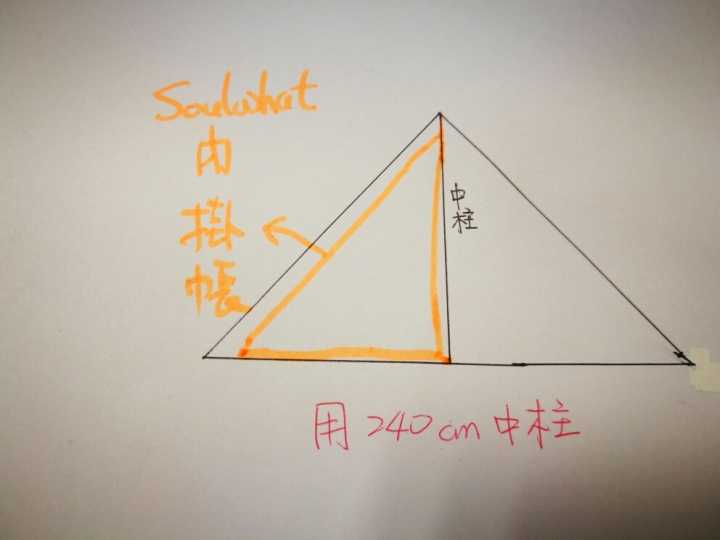 Soulwhat
内
掛
帳
中
柱
用240cm中柱